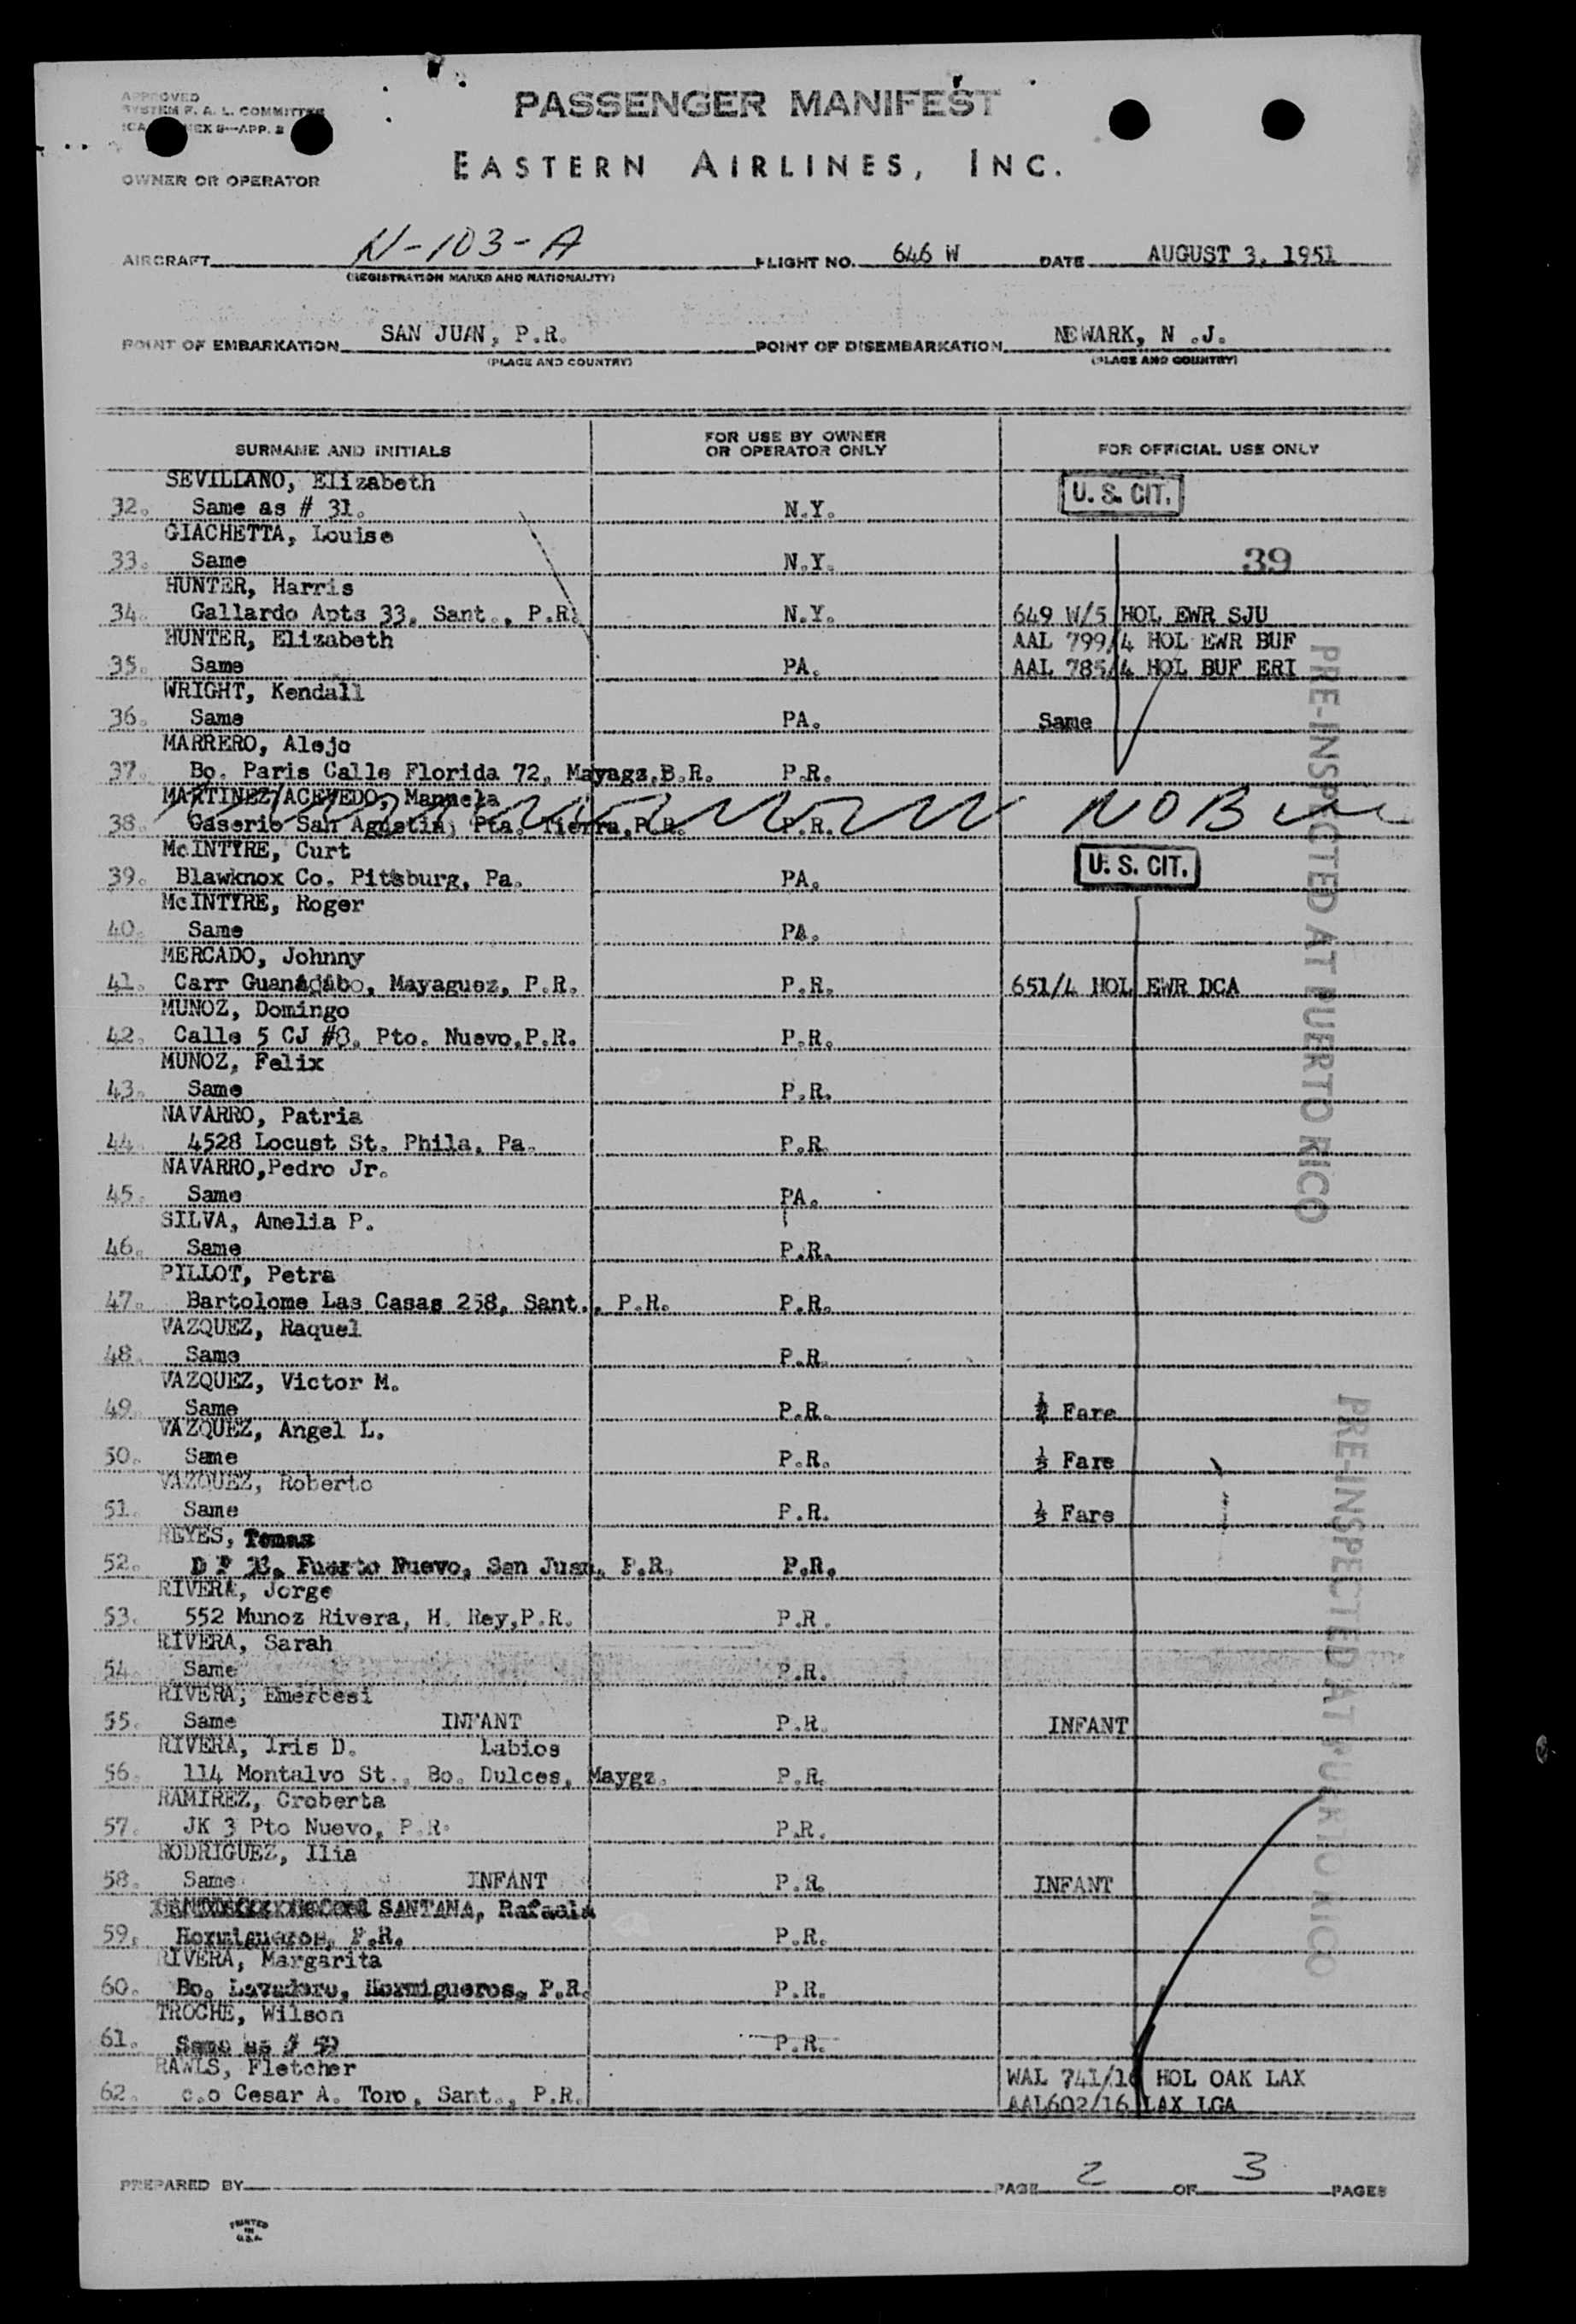 APPROVED
SYSTEM F. A. L. COMMITTEE
EX 9—APP. 2
PASSENGER MANIFEST
EASTERN AIRLINES, INC.
OWNER OR OPERATOR
AIRCRAFT N-103-A FLIGHT NO. 646 W DATE AUGUST 3, 1951
(REGISTRATION MARKS AND NATIONALITY)
POINT OF EMBARKATION SAN JUAN, P.R. POINT OF DISEMBARKATION NEWARK, N .J.
(PLACE AND COUNTRY) (PLACE AND COUNTRY)
SURNAME AND INITIALS FOR USE BY OWNER OR OPERATOR ONLY FOR OFFICIAL USE ONLY
SEVILLANO, Elizabeth U. S. CIT.
32. Same as # 31. N.Y.
GIACHETTA, Louise
33. Same N.Y. 39
HUNTER, Harris
34. Gallardo Apts 33, Sant., P.R. N.Y. 649 W/5 HOL EWR SJU
HUNTER, Elizabeth AAL 799/4 HOL EWR BUF
35. Same PA. AAL 785/4 HOL BUF ERI
WRIGHT, Kendall
36. Same PA. Same
MARRERO, Alejo
37. Bo. Paris Calle Florida 72, Mayagz,P.R. P.R.
MARTINEZ/ACEVEDO, Manuela NOB
38. Caserio San Agustin, Pta. Tierra,P.R. P.R.
McINTYRE, Curt U. S. CIT.
39. Blawknox Co. Pittsburg, Pa. PA.
McINTYRE, Roger
40. Same PA.
MERCADO, Johnny
41. Carr Guanadibo, Mayaguez, P.R. P.R. 651/4 HOL EWR DCA
MUNOZ, Domingo
42. Calle 5 CJ #8, Pto. Nuevo,P.R. P.R.
MUNOZ, Felix
43. Same P.R.
NAVARRO, Patria
44. 4528 Locust St. Phila, Pa. P.R.
NAVARRO,Pedro Jr.
45. Same PA.
SILVA, Amelia P.
46. Same P.R.
PILLOT, Petra
47. Bartolome Las Casas 258, Sant., P.R. P.R.
VAZQUEZ, Raquel
48. Same P.R.
VAZQUEZ, Victor M.
49. Same P.R. ½ Fare
VAZQUEZ, Angel L.
50. Same P.R. ½ Fare
VAZQUEZ, Roberto
51. Same P.R. ½ Fare
REYES, Tomas
52. Puerto Nuevo, San Juan, P.R. P.R.
RIVERA, Jorge
53. 552 Munoz Rivera, H. Rey,P.R. P.R.
RIVERA, Sarah
54. Same P.R.
RIVERA, Emercesi
55. Same INFANT P.R. INFANT
RIVERA, Iris D. Labios
56. 114 Montalvo St., Bo. Dulces, Maygz. P.R.
RAMIREZ, Croberta
57. JK 3 Pto Nuevo, P.R. P.R.
RODRIGUEZ, Ilia
58. Same INFANT P.R. INFANT
SANTANA, Rafaela
59. Hormigueros, P.R. P.R.
RIVERA, Margarita
60. Bo. Lavadero, Hormigueros, P.R. P.R.
TROCHE, Wilson
61. Same as # 59 P.R.
RAWLS, Fletcher WAL 741/16 HOL OAK LAX
62. c.o Cesar A. Toro, Sant., P.R. AAL602/16 LAX LGA
PRE-INSPECTED AT PUERTO RICO
PRE-INSPECTED AT PUERTO RICO
PREPARED BY PAGE 2 OF 3 PAGES
PRINTED
IN
U.S.A.